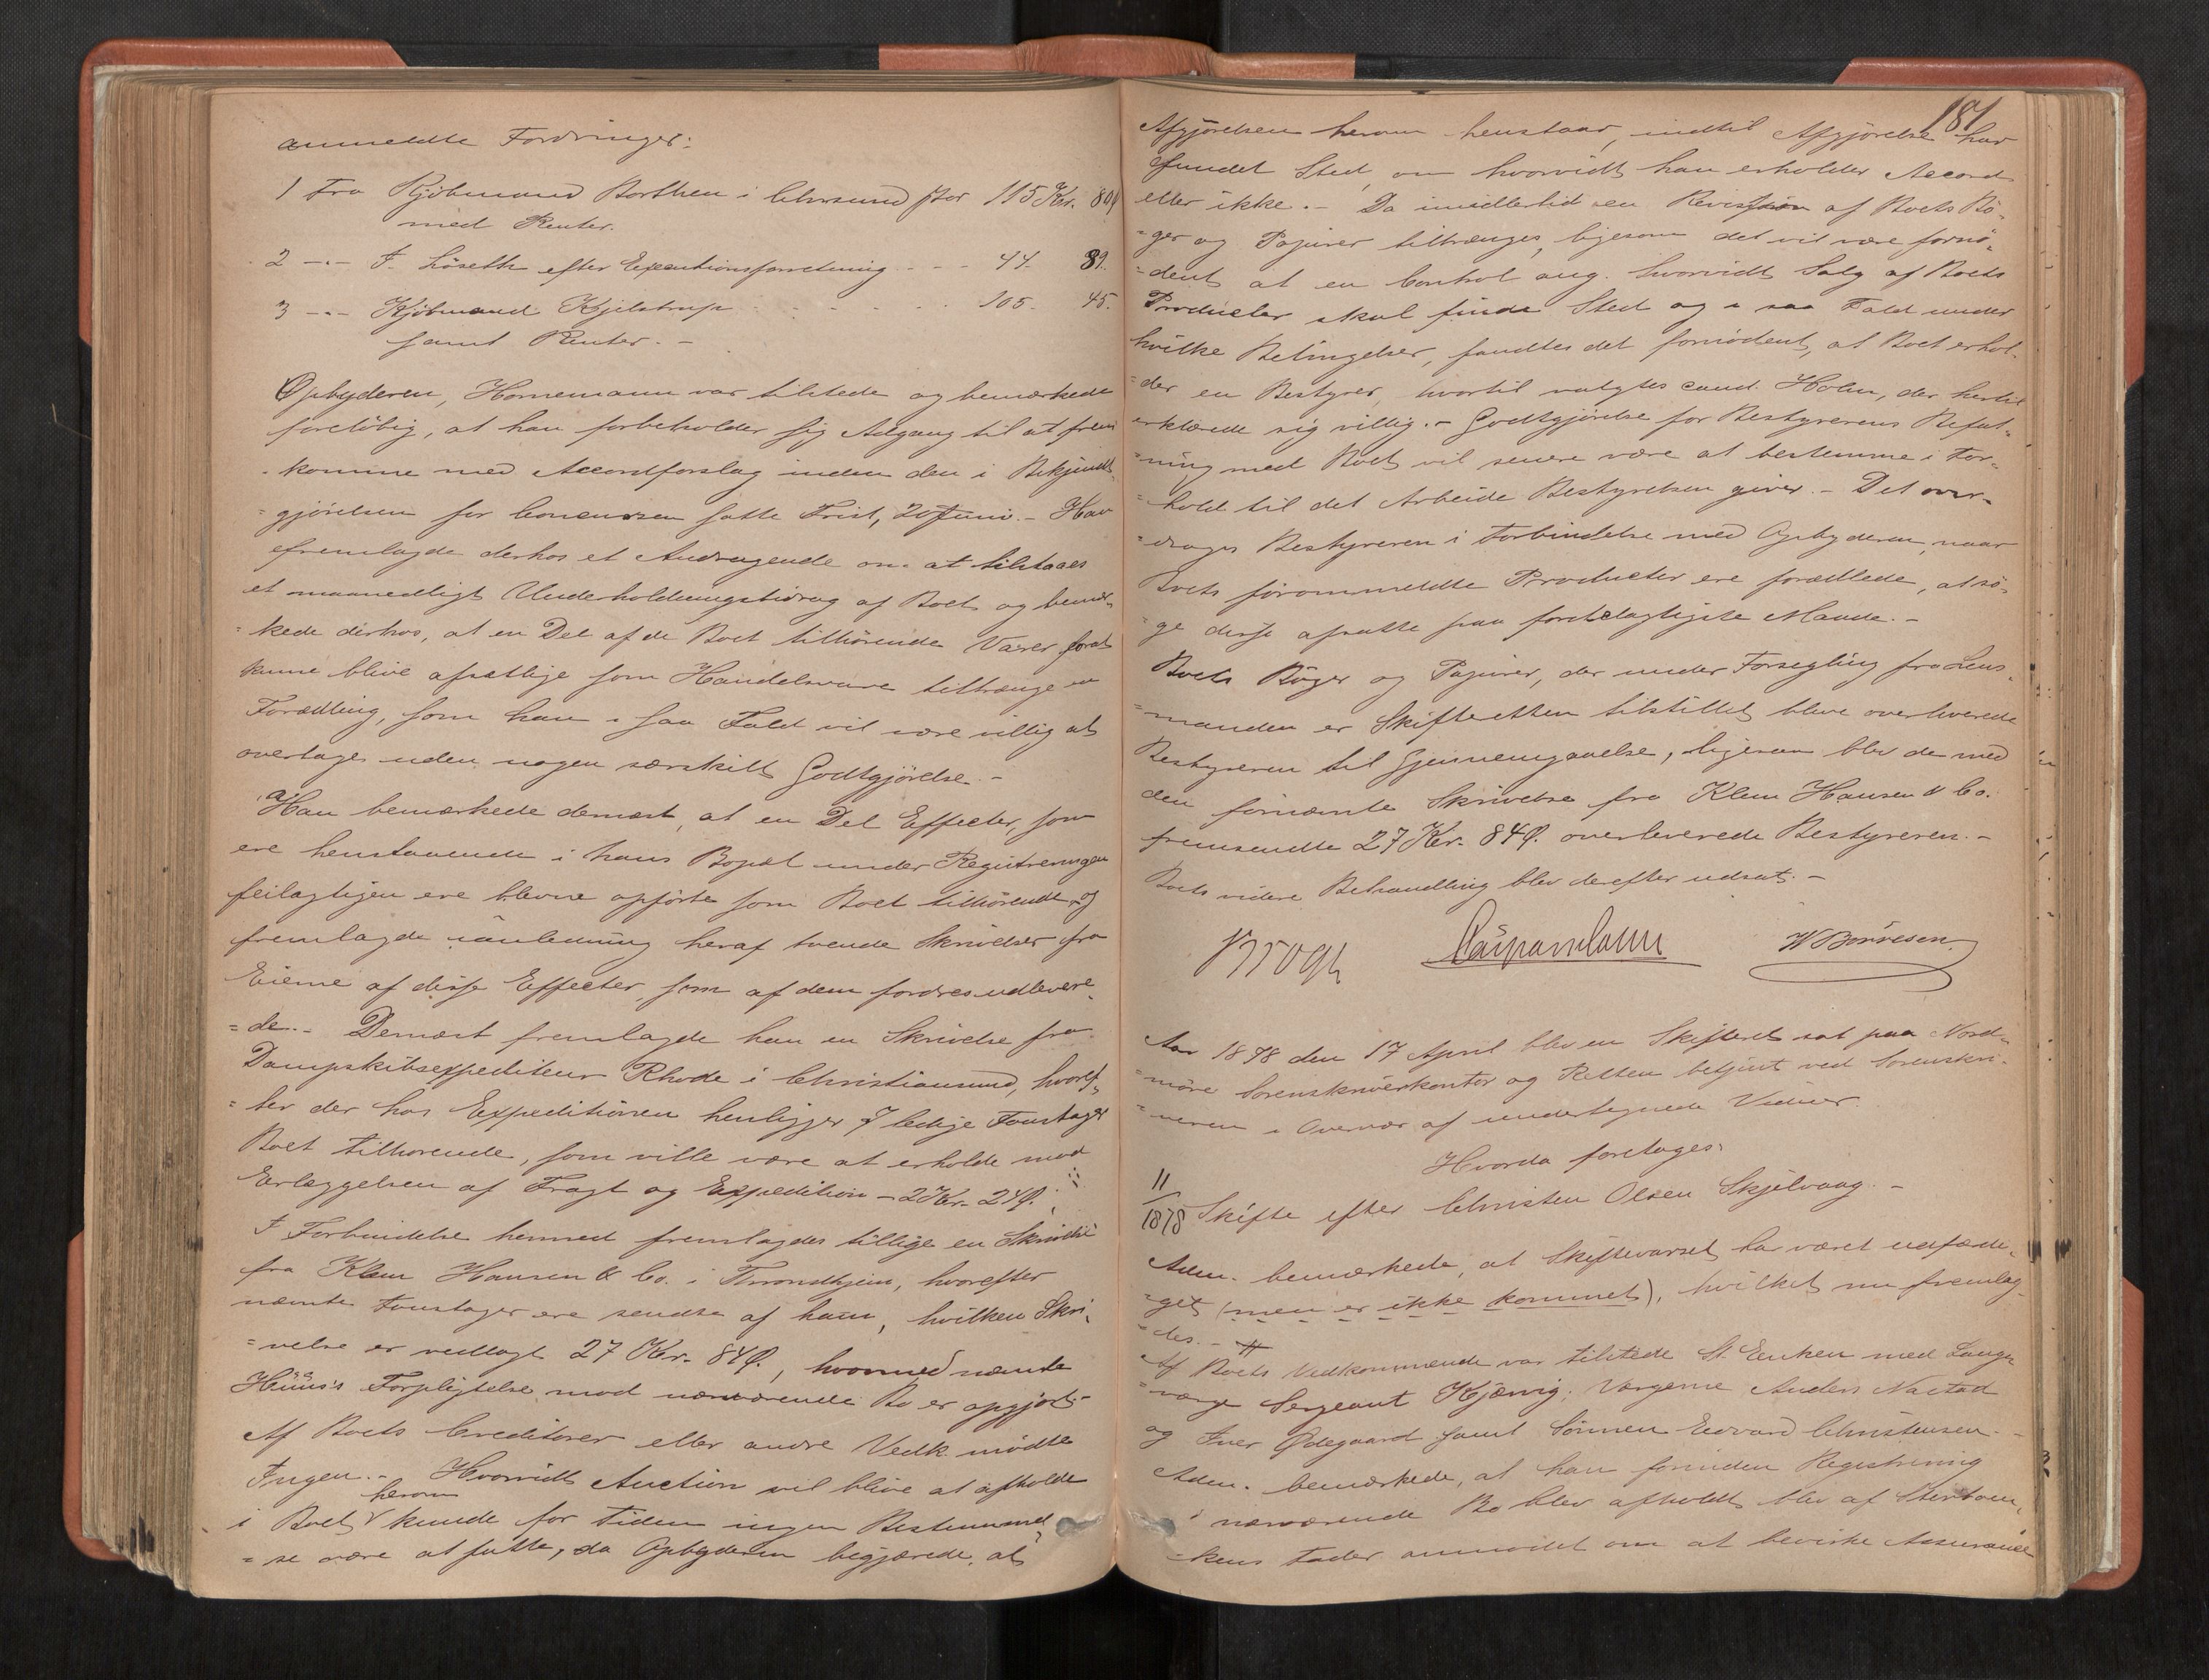 anmeldte Fordringer:
1 Fra Kjöbmand Borthen i Chrsund stor 115 Kr. 80
med Renter.
2 -"- F. Löseth efter Executionsforretning - - - 44. 89.
3 -"- Kjöbmand Kjelstrup . . . . . 105. 45.
samt Renter. -
Opbyderen, Hornemann var tilstede og bemærkede
foreløbig, at han forbeholder sig Adgang til at frem
komme med Accordforslag inden den i Bekjendt-
= gjörelsen for Concursen satte Frist, 20 Juni. - Han
fremlagde derhos et Andragende om at tilstaaes
et maanedligt Underholdningsbidrag af Boet og bemær-
= kede derhos, at en Del af de Boet tilhörende Varer forat
kunne blive afsættlige som Handelsvare tiltrænge en
Forædling, som han i saa Fald vil være villig at
overtage uden nogen særskilt Godtgjörelse. -
Han bemærkede dernæst, at en Del Effecter, som
ere henstaaende i hans Bopæl under Registreringen
feilagtigen ere blevne opförte som Boet tilhörende, og
fremlagde i anledning heraf tvende Skrivelser fra
Eierne af disse Effecter, som af dem fordres udlevere-
= de. - Dernæst fremlagde han en Skrivelse fra
Dampskibsexpediteur Rhode i Christiansund, hvoref-
= ter der hos Expeditionen henligger 7 ledige Foustager
Boet tilhørende, som ville være at erholde mod
Erlæggelsen af Fragt og Expedition - 2 Kr. 24 Ø.
I Forbindelse hermed fremlagdes tillige en Skrivelse
fra Klem Hansen & Co. i Throndhjem, hvorefter
nævnte Foustager ere sendte af ham, hvilken Skri-
= velse er vedlagt 27 Kr. 84 Ø., hvormed nævnte
Forpligtelse mod nærværende Bo er opgjort -
Af Boets Creditorer eller andre Vedk. mödte
Ingen. - Hvorvidt Auction vil blive at afholde
herom
i Boet kunde for Tiden ingen Bestemmel-
= se være at fatte, da Opbyderen begjærede, at
181
Afgjörelsen herom henstaar, indtil Afgjörelse har
fundet Sted, om hvorvidt han erholder Accord
eller ikke. - Da imidlertid en Revision af Boets Bö-
= ger og Papirer tiltrænges, ligesom det vil være fornö-
= dent at en Control ang. hvorvidt Salg af Boets
Producter skal finde Sted og i saa Fald under
hvilke Betingelser, fandtes det fornödent, at Boet erhol-
= der en Bestyrer, hvortil valgtes cand. Holm, der hertil
erklærede sig villig. - Godtgjörelse for Bestyrerens Befat-
= ning med Boet vil senere være at bestemme i For-
= hold til det Arbeide Bestyrelsen giver. - Det over-
= drages Bestyreren i Forbindelse med Opbyderen, naar
Boets förommeldte Producter ere forædlede, at sö-
= ge disse afsatte paa fordelagtigste Maade. -
Boets Böger og Papirer, der under Forsegling fra Lens-
= manden er Skifteretten tilstillet blive overleverede
Bestyreren til Gjennemgaaelse, ligesom blev de med
den fornævnte Skrivelse fra Klem Hansen & Co.
fremsendte 27 Kr. 84 Ø. overleverede Bestyreren. -
Boets videre Behandling blev derefter udsat. -
W Börresen
Aar 1878 den 17 April blev en Skifteret sat paa Nord-
= möre Sorenskriverkontor og Retten betjent ved Sorenskri-
= veren i Overvær af undertegnede Vidner.
Hvorda foretoges:
11/1878 Skifte efter Christen Olsen Skjelvaag. -
Adm. bemærkede, at Skiftevarsel har været udfærdi-
= get (men er ikke kommet), hvilket nu fremlag-
= des. -
Af Boets Vedkommende var tilstede St. Enken med Laug-
= værge Sergeant Kjærvig, Værgerne Anders Nastad
og Iver Ödegaard samt Sönnen Edvard Christensen. -
Adm. bemærkede, at han forinden Registrering
i nærværende Bo blev afholdt blev af Sterboen-
= kens Fader anmodet om at bevirke Assurance